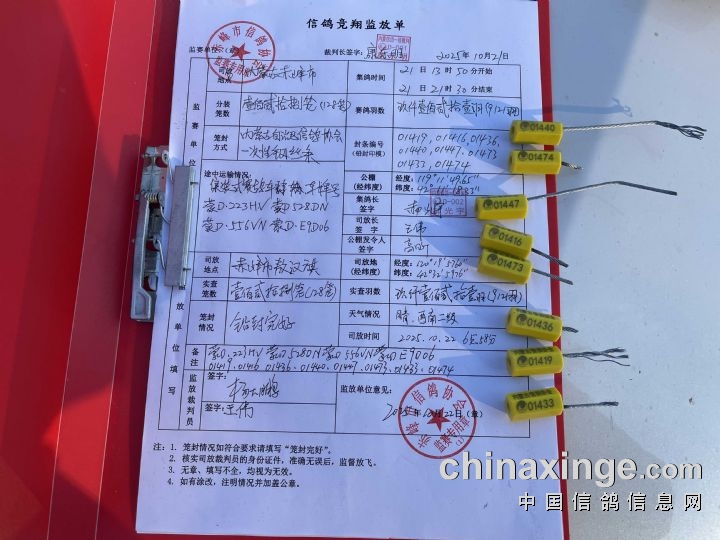 信鸽竞翔监放单
监赛单位：(章)
裁判长签字：
2025年10月21日
监赛单位
司放地点
赤峰市
集鸽时间
21日13时50分开始
21日21时30分结束
分装笼数
壹佰贰拾捌笼(128笼)
赛鸽羽数
玖仟壹佰贰拾壹羽(9121羽)
笼封方式
内蒙古自治区信鸽协会
一次性钢丝条
封条编号
(铅封印模)
01419,01416,01436,
01440,01447,01473
01433,01474
途中运输情况：
蒙D·223HV 蒙D528DN
蒙D·556VN 蒙D·E9D06
公棚
(经纬度)
经度：119°11′49.65″
集鸽长签字
司放长签字
王伟
公棚发令人签字
司放地点
赤峰市敖汉旗
司放地
(经纬度)
实查笼数
壹佰贰拾捌笼(128笼)
实查羽数
玖仟壹佰贰拾壹羽(9121羽)
笼封情况
铅封完好
天气情况
晴、西南二级
司放时间
2025.10.22 6点58分
放单位填写
备注
蒙D.223HV 蒙D528DN 蒙D556VN 蒙D E9D06
01419,01416 01436、01440、01447、01473、01433、01474
监放裁判员
签字：
签字：王伟
监放单位意见：
2025年10月22日(章)
注：1. 笼封情况如符合要求请填写“笼封完好”。
2. 核实司放裁判员的身份证件，准确无误后，监督放飞。
3. 无章、填写不全，均视为无效。
4. 如有涂改，注明情况并加盖公章。
01440
01474
01447
01416
01473
01436
01419
01433
chinaxinge.com
中国信鸽信息网